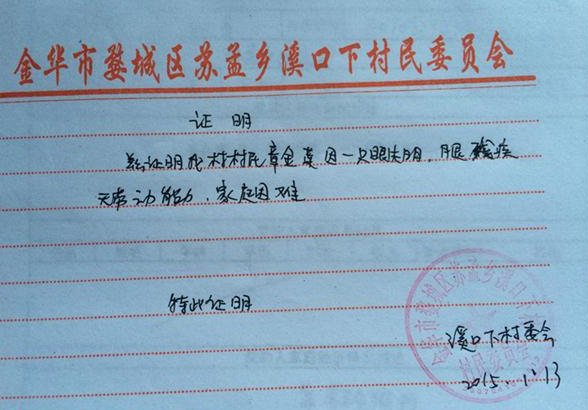 金华市婺城区苏孟乡溪口下村民委员会
证明
兹证明我村村民章金莫因一只眼失明，腿残疾
无劳动能力，家庭困难
特此证明
溪口下村委会
2015.1.13
金华市婺城区苏孟乡溪口下村
村民委员会